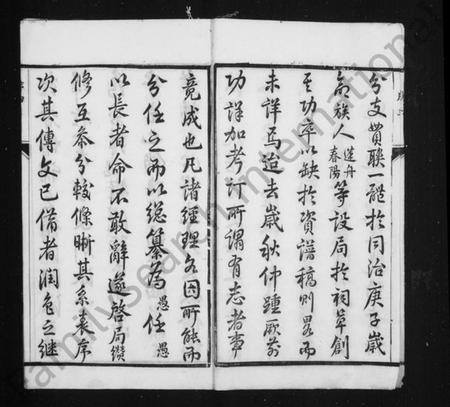 分支貫聯一體於同治庚子歲
俞族人蓮舟春陽等設局於祠草創
其功率以缺於資譜稿則畧而
未詳焉迨去歲秋仲踵厥前
功詳加考訂所謂有志者事
竟成也凡諸經理各因所能而
分任之而以總纂為愚任愚
以長者命不敢辭遂啓局纘
修互叅分較條晰其系表序
次其傳文已備者潤色之繼
familysearch international